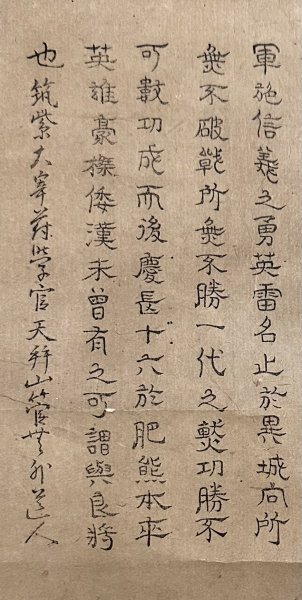 軍施信義之勇英雷名止於異城向所
無不破戰所無不勝一代之勲功勝不
可數功成而後慶長十六於肥熊本卒
英雄豪傑倭漢未曾有之可謂與良將
也筑紫大宰府学官天拜山菅 道人